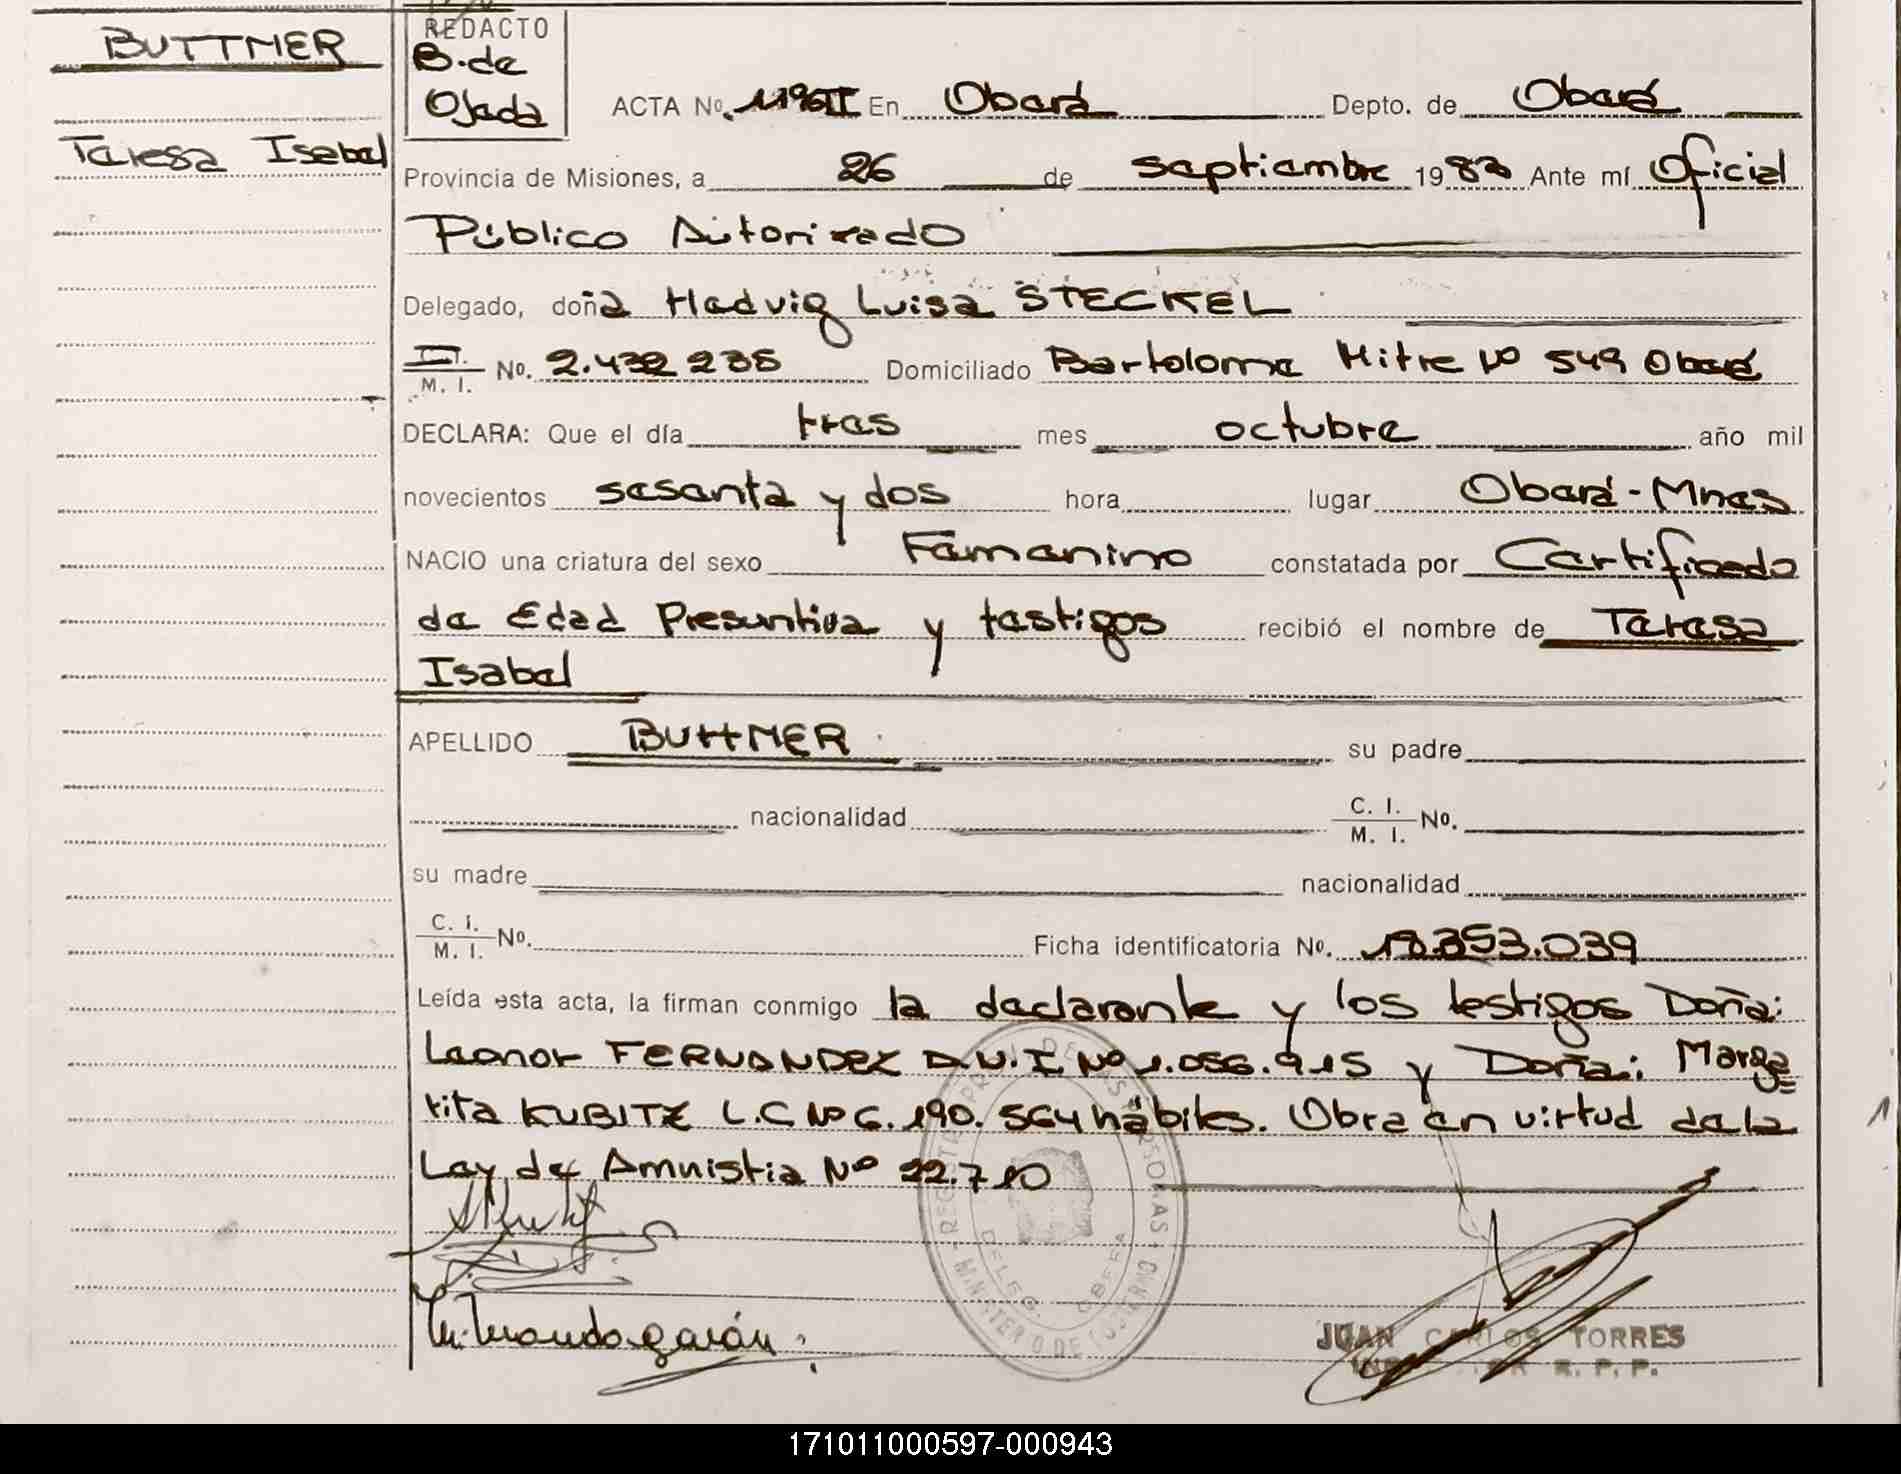 BUTTNER
Teresa Isabel
REDACTO
B. de
Ojeda
ACTA No. 1196II En Oberá Depto. de Oberá
Provincia de Misiones, a 26 de septiembre 1983 Ante mí Oficial
Público Autorizado
Delegado, doña Hedvig Luisa STECKEL
M. I. No. 2.432 235 Domiciliado Bartolome Mitre No 549 Oberá
DECLARA: Que el día tres mes octubre año mil
novecientos sesenta y dos hora lugar Oberá - Mnes
NACIO una criatura del sexo Femenino constatada por Certificado
de Edad Presuntiva y testigos recibió el nombre de Teresa
Isabel
APELLIDO BUTTNER su padre
nacionalidad C. I. M. I. No.
su madre nacionalidad
C. I. M. I. No. Ficha identificatoria No. 18.353.039
Leída esta acta, la firman conmigo la declarante y los testigos Doña:
Leonor FERNANDEZ D.N.I. No 1.056.915 y Doña: Marga=
rita KUBITZ L.C No 6.190.564 hábiles. Obra en virtud de la
Ley de Amnistia No 22.710
REGISTRO PROV. DE LAS PERSONAS
MINISTERIO DE GOBIERNO
DELEG. OBERA
JUAN CARLOS TORRES
R. P. P.
171011000597-000943